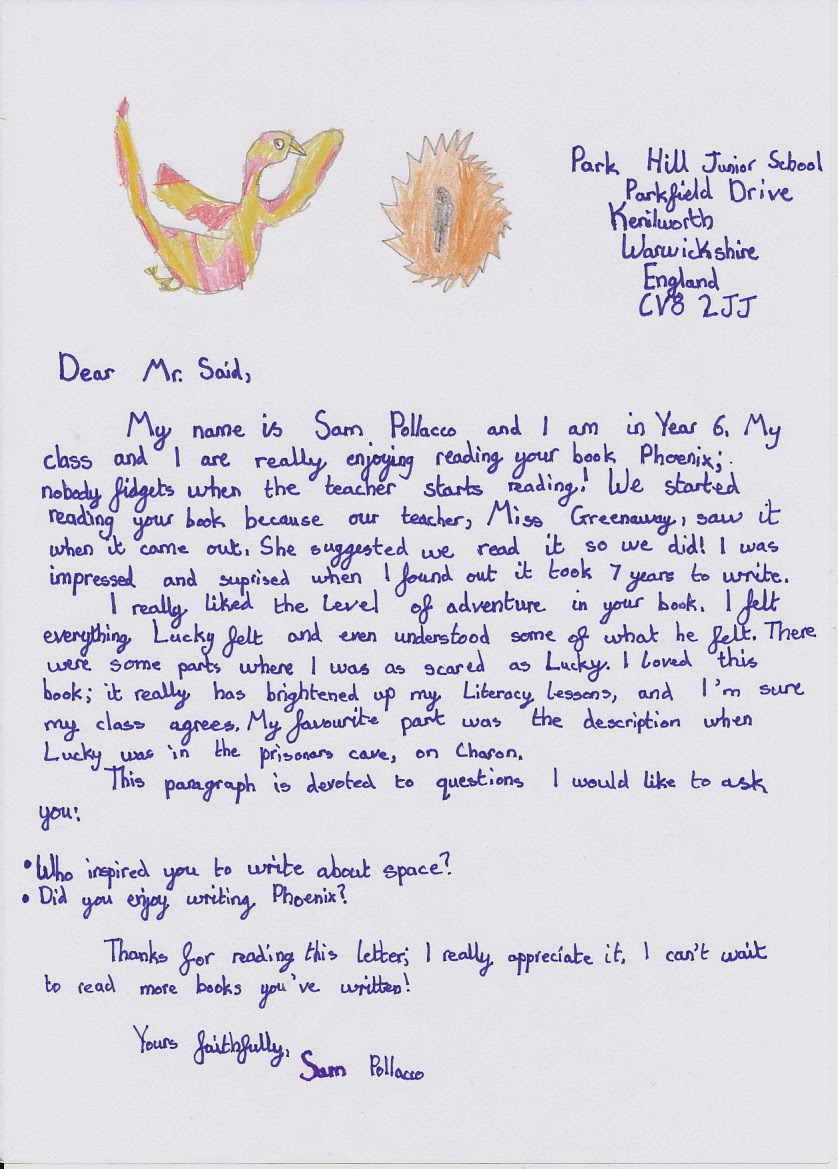 Park Hill Junior School
Parkfield Drive
Kenilworth
Warwickshire
England
CV8 2JJ
Dear Mr. Said,
My name is Sam Pollacco and I am in Year 6. My
class and I are really enjoying reading your book Phoenix;
nobody fidgets when the teacher starts reading! We started
reading your book because our teacher, Miss Greenaway, saw it
when it came out. She suggested we read it so we did! I was
impressed and suprised when I found out it took 7 years to write.
I really liked the level of adventure in your book. I felt
everything Lucky felt and even understood some of what he felt. There
were some parts where I was as scared as Lucky. I loved this
book; it really has brightened up my Literacy lessons, and I'm sure
my class agrees. My favourite part was the description when
Lucky was in the prisonars cave, on Charon.
This paragraph is devoted to questions I would like to ask
you:
• Who inspired you to write about space?
• Did you enjoy writing Phoenix?
Thanks for reading this letter; I really appreciate it. I can't wait
to read more books you've written!
Yours faithfully,
Sam Pollacco